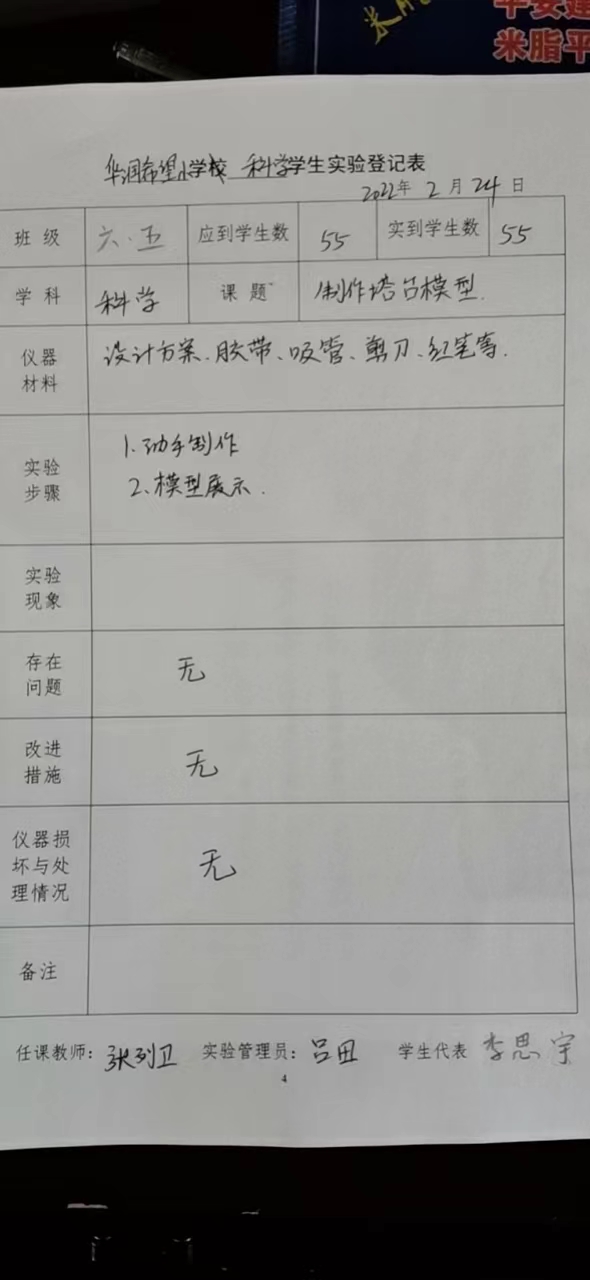 米脂平
华润希望小学校 科学学生实验登记表
2022年 2 月 24 日
班 级 六.五 应到学生数 55 实到学生数 55
学 科 科学 课 题 制作塔台模型.
仪器
材料
设计方案、胶带、吸管、剪刀、红笔等.
实验
步骤
1.动手制作
2.模型展示.
实验
现象
存在
问题
无
改进
措施
无
仪器损
坏与处
理情况
无
备注
任课教师: 张列卫 实验管理员: 吕田 学生代表 李思宇
4